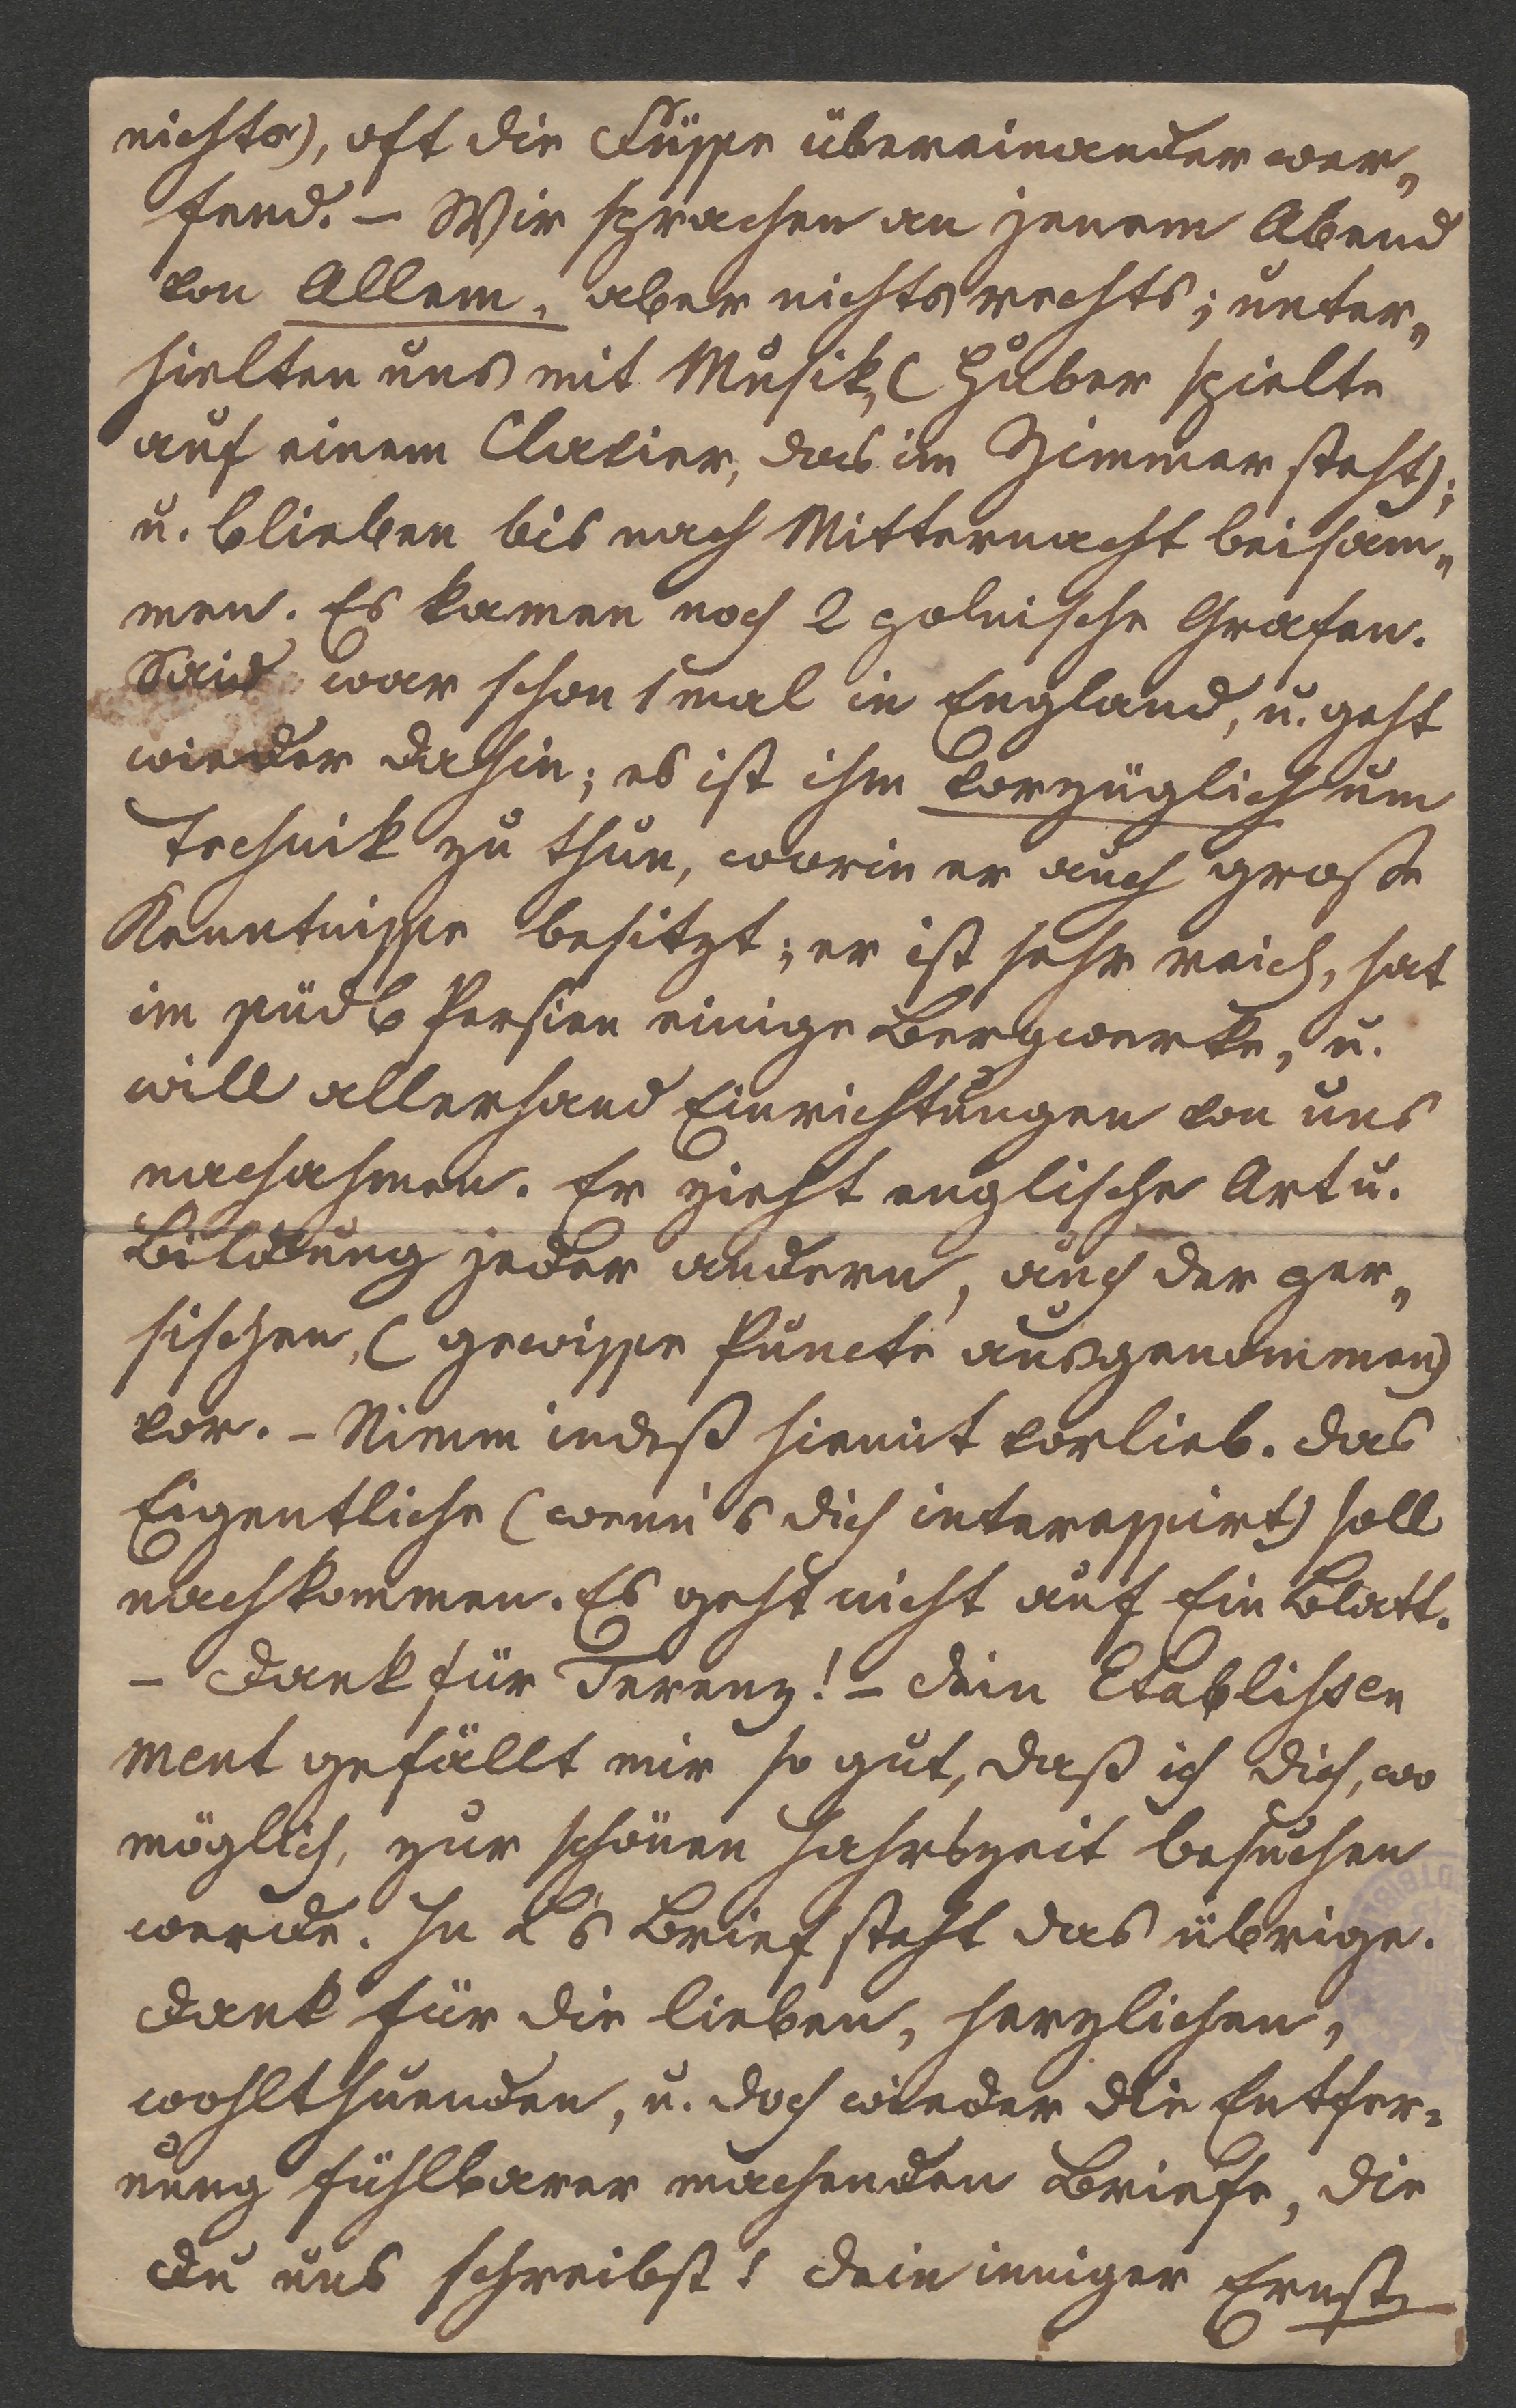 nichts), oft die Füsse übereinander wer„
fend. – Wir sprachen an jenem Abend
von Allem, aber nichts rechts; unter„
hielten uns mit Musik, (Huber spielte
auf einem Clavier, das im Zimmer steht);
u. blieben bis nach Mitternacht beisam„
men. Es kamen noch 2 polnische Grafen.
Said war schon 1 mal in England, u. geht
wieder dahin; es ist ihm vorzüglich um
Technik zu thun, worin er auch große
Kenntnisse besitzt; er ist sehr reich, hat
im südl Persien einige Bergwerke, u.
will allerhand Einrichtungen von uns
nachahmen. Er zieht englische Art u.
Bildung jeder andern, auch der per„
sischen, (gewisse Puncte ausgenommen)
vor. – Nimm indeß hiemit vorlieb. Das
Eigentliche (wenn's dich interessirt) soll
nachkommen. Es geht nicht auf Ein Blatt.
– Dank für Terenz! – Dein Etablissen
ment gefällt mir so gut, daß ich dich, wo
möglich, zur schönen Jahrszeit besuchen
werde. In L's Brief steht das übrige.
Dank für die lieben, herzlichen,
wohlthuenden, u. doch wieder die Entfer=
nung fühlbarer machenden Briefe, die
du uns schreibst! Dein inniger Ernst